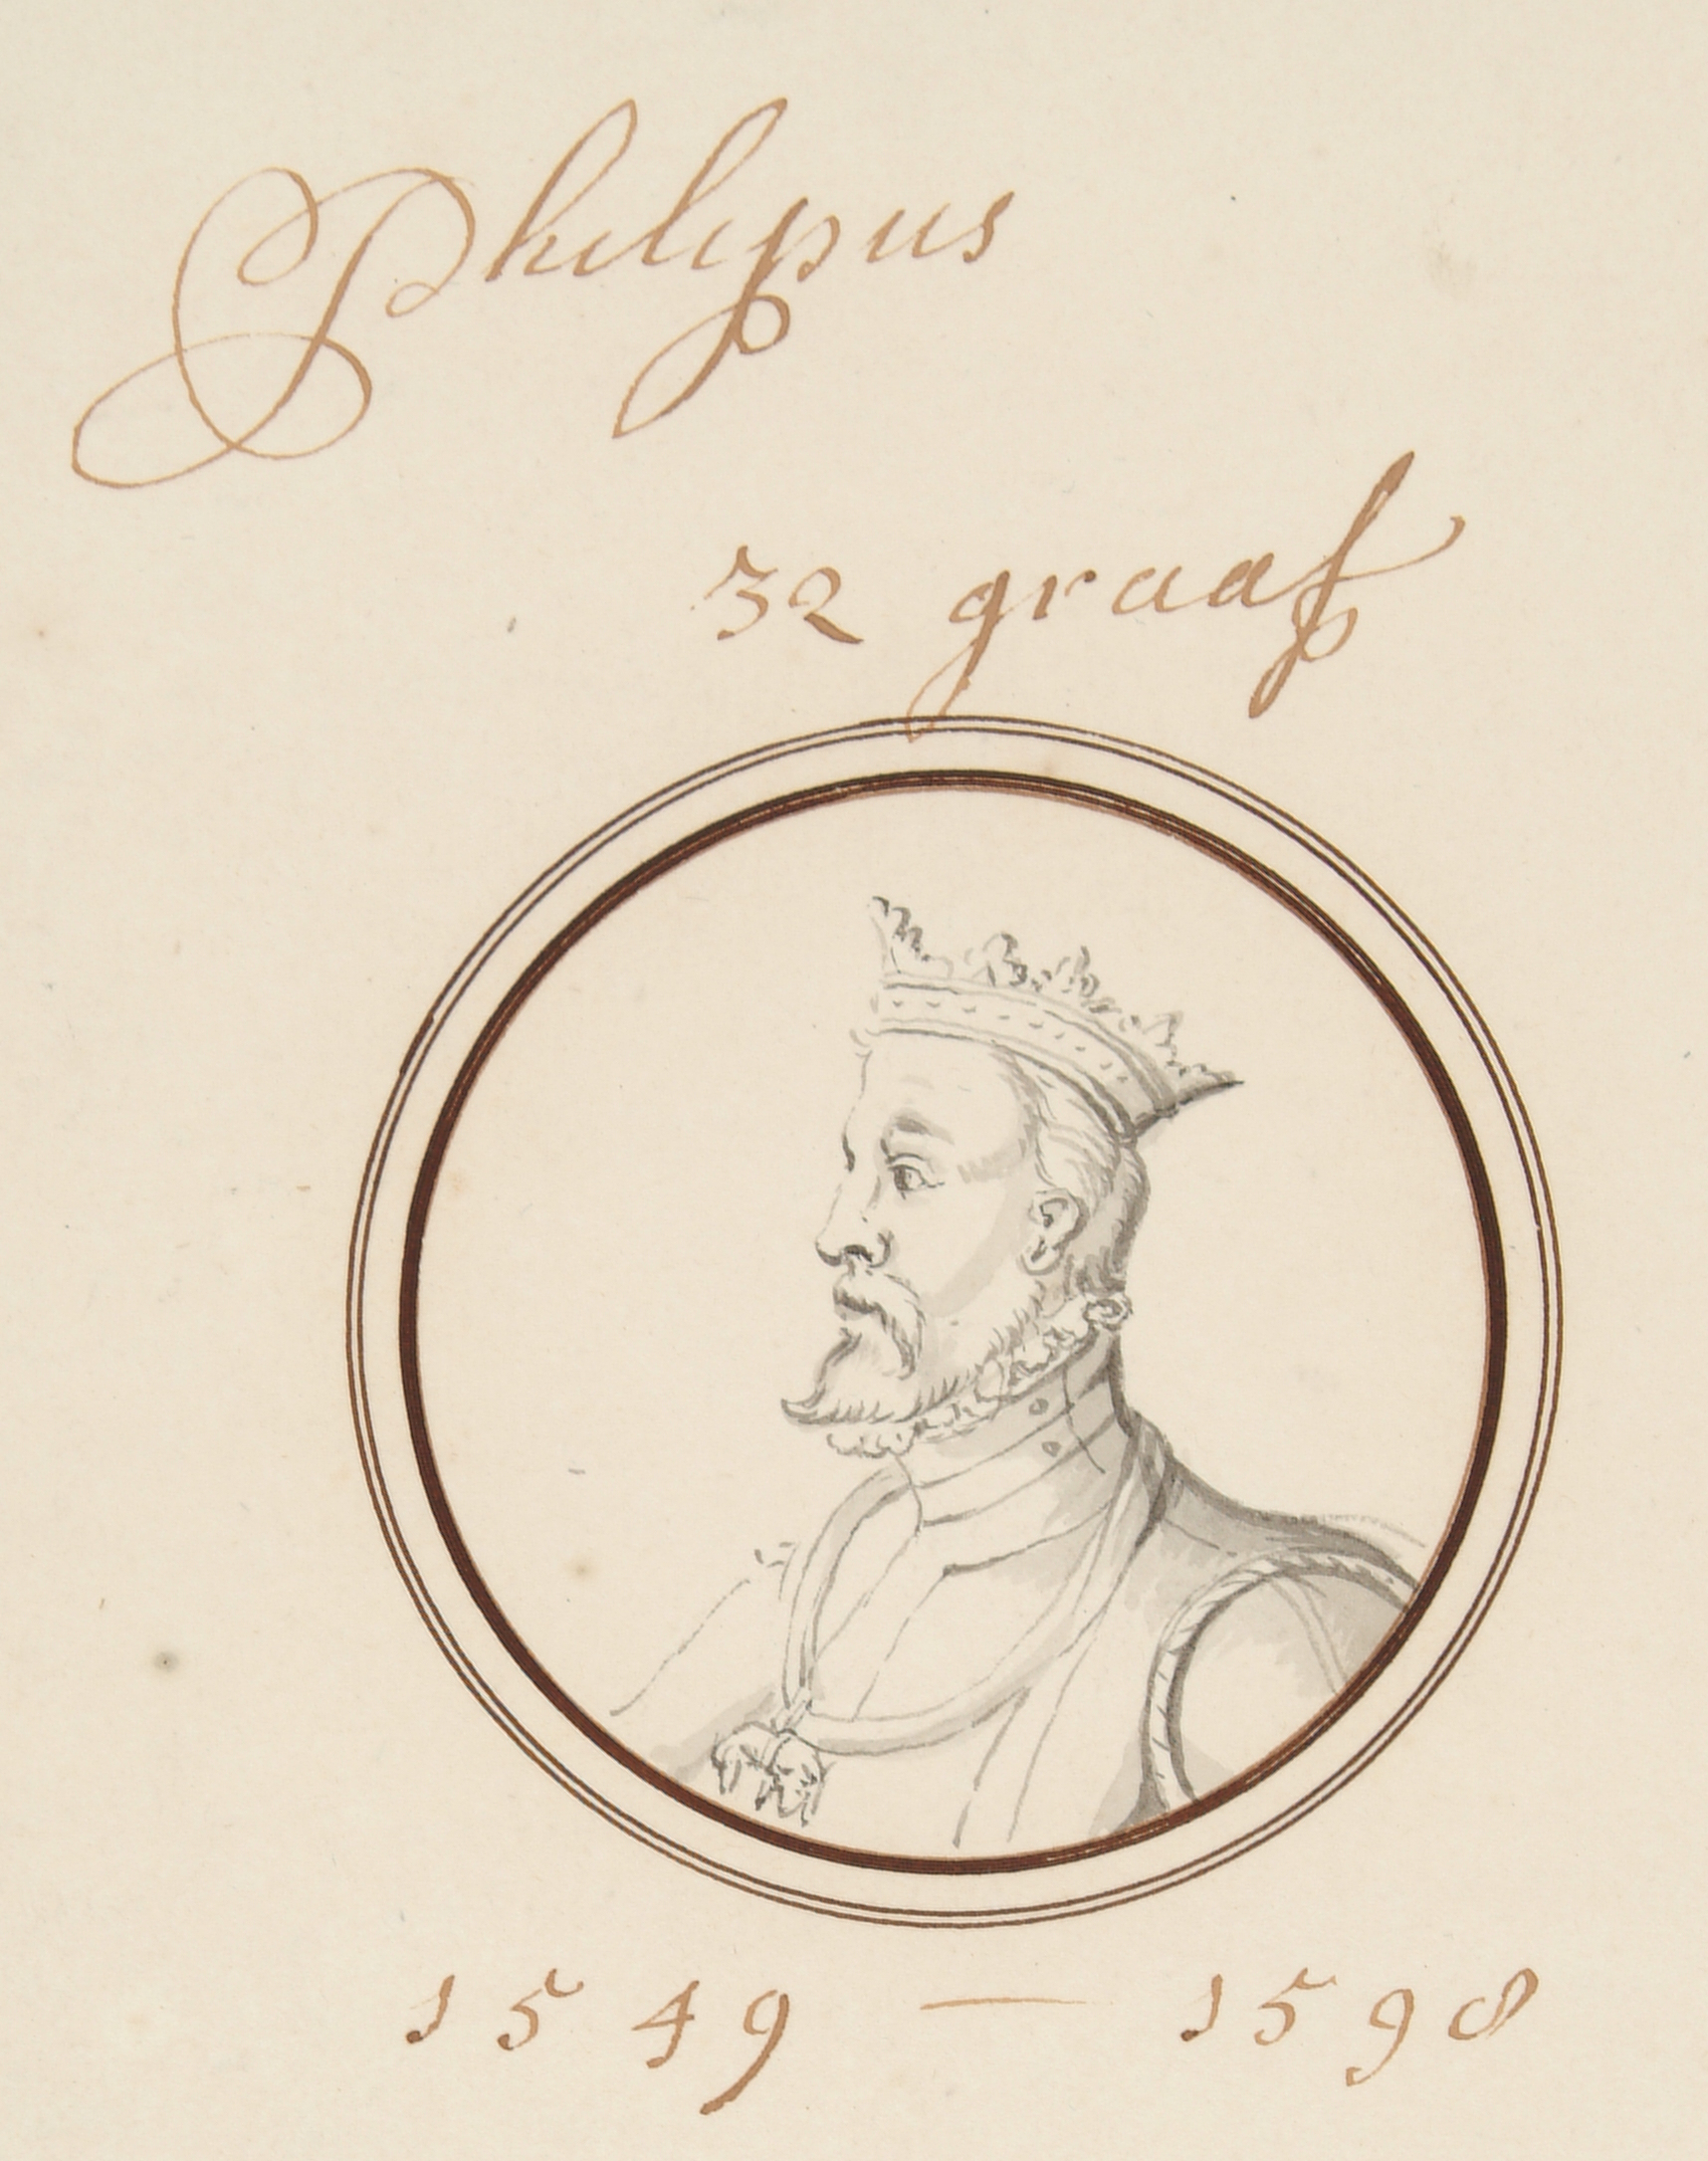 Philipus
32 graaf
1549 — 1598